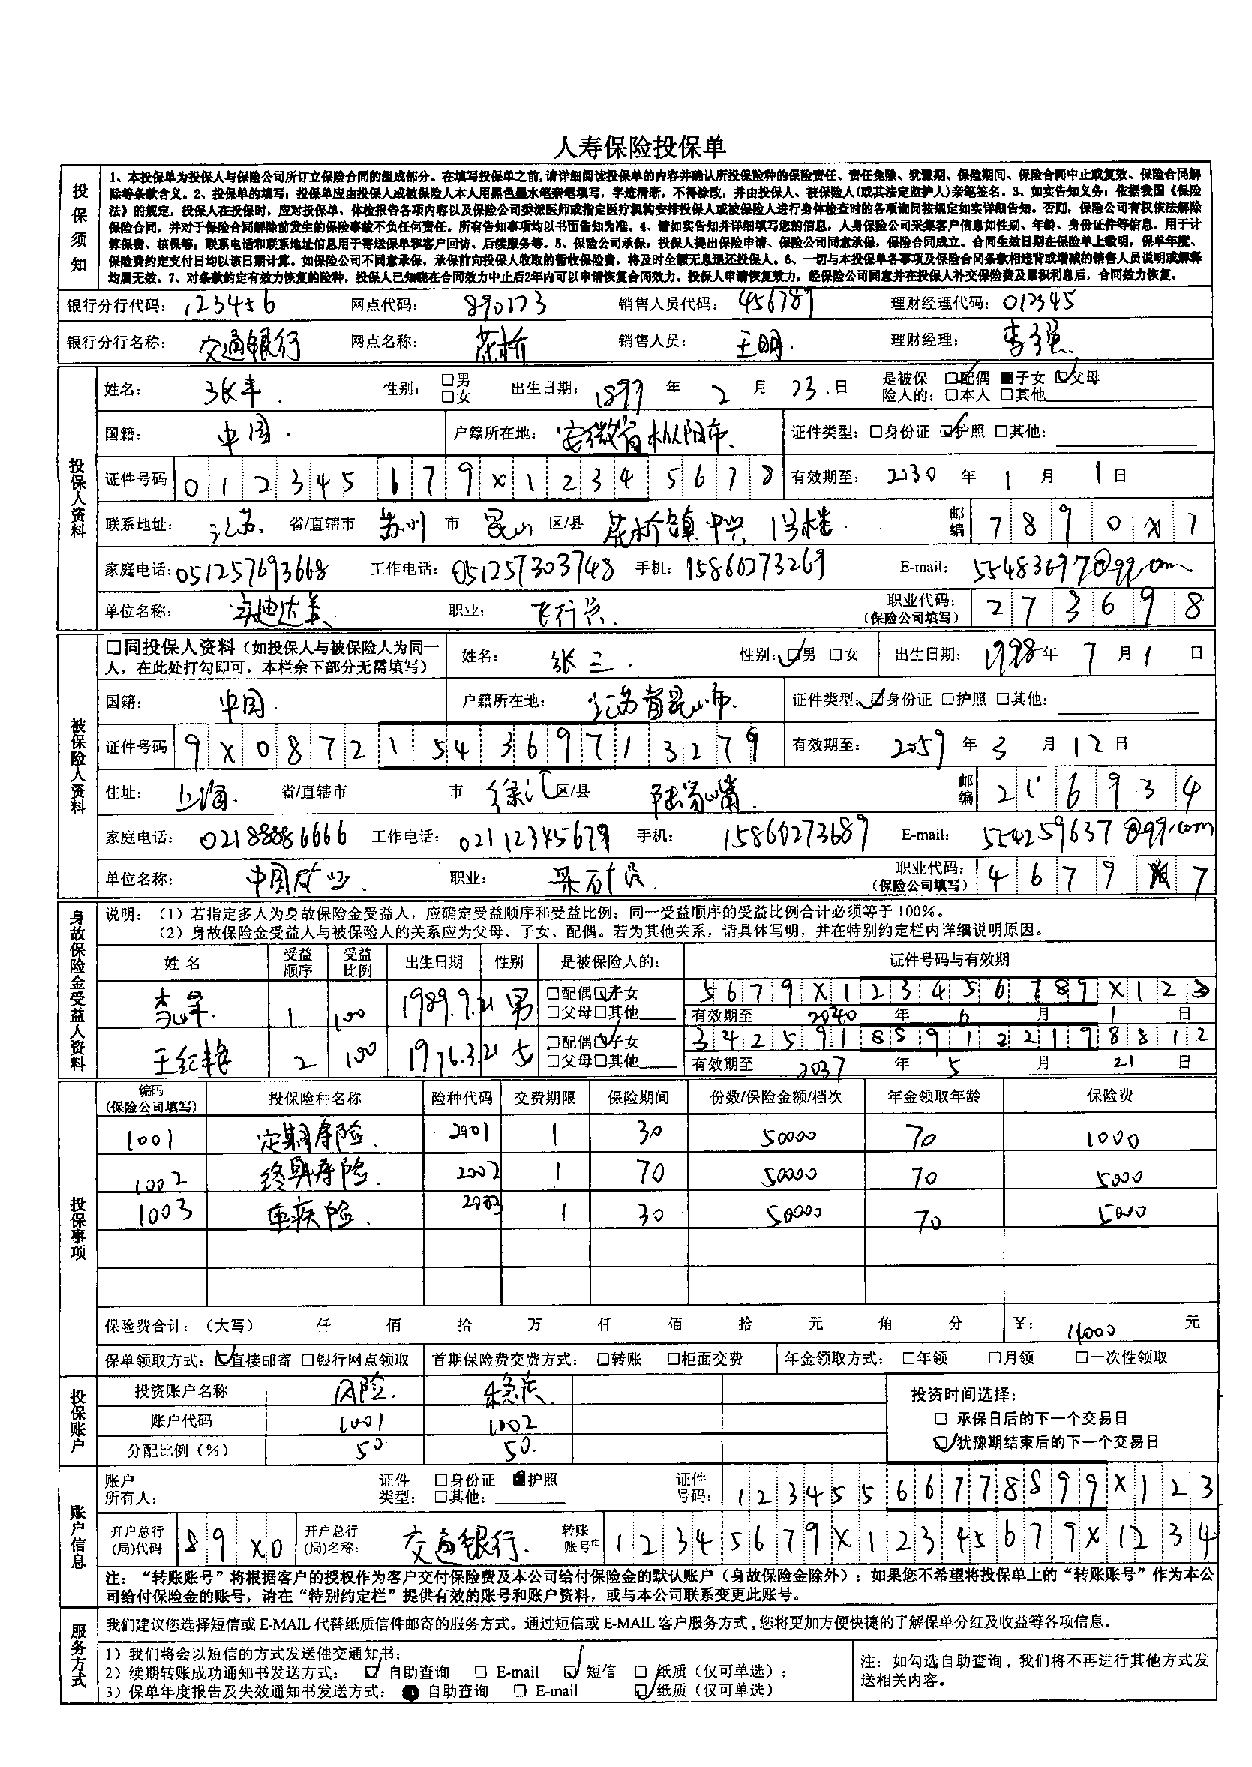 人寿保险投保单
投保须知
1、本投保单为投保人与保险公司所订立保险合同的组成部分。在填写投保单之前,请详细阅读投保单的内容并确认所投保险种的保险责任、责任免除、犹豫期、保险期间、保险合同中止或复效、保险合同解
除等条款含义。2、投保单的填写:投保单应由投保人或被保险人本人用黑色墨水笔亲笔填写,字迹清晰,不得涂改,并由投保人、被保险人(或其法定监护人)亲笔签名。3、如实告知义务:依据我国《保险
法》的规定,投保人在投保时,应对投保单、体检报告各项内容以及保险公司委派医师或指定医疗机构安排投保人或被保险人进行身体检查时的各项询问按规定如实详细告知。否则,保险公司有权依法解除
保险合同,并对于保险合同解除前发生的保险事故不负任何责任。所有告知事项均以书面告知为准。4、请如实告知并详细填写您的信息,人身保险公司采集客户信息如性别、年龄、身份证件等信息,用于计
算保费、核保等;联系电话和联系地址信息用于寄送保单和客户回访、后续服务等。5、保险公司承保:投保人提出保险申请、保险公司同意承保,保险合同成立。合同生效日期在保险单上载明,保单年度、
保险费约定支付日均以该日期计算。如保险公司不同意承保,承保前向投保人收取的暂收保险费,将及时全额无息退还投保人。6、一切与本投保单各事项及保险合同条款相违背或增减的销售人员说明或解释
均属无效。7、对条款约定有效力恢复的险种,投保人已知晓在合同效力中止后2年内可以申请恢复合同效力。投保人申请恢复效力,经保险公司同意并在投保人补交保险费及累积利息后,合同效力恢复。
银行分行代码: 123456 网点代码: 890123 销售人员代码: 456789 理财经理代码: 012345
银行分行名称: 交通银行 网点名称: 花桥 销售人员: 王明 理财经理: 李强
投保人资料
姓名: 张丰 性别: □男 □女 出生日期: 1899 年 2 月 23 日 是被保险人的: □配偶 ■子女 □父母 □本人 □其他
国籍: 中国 户籍所在地: 安徽省枞阳市 证件类型: □身份证 □护照 □其他:
证件号码 012345679X12345678 有效期至: 2030 年 1 月 1 日
联系地址: 江苏 省/直辖市 苏州 市 昆山 区/县 花桥镇中兴 1号楼 邮编 7890X1
家庭电话: 051257693668 工作电话: 051257303748 手机: 15860273269 E-mail: 55483697@qq.com
单位名称: 职业: 飞行员 职业代码: (保险公司填写) 273698
被保险人资料
□同投保人资料(如投保人与被保险人为同一
人,在此处打勾即可,本栏余下部分无需填写) 姓名: 张三 性别: □男 □女 出生日期: 1998 年 7 月 1 日
国籍: 中国 户籍所在地: 江苏省昆山市 证件类型: □身份证 □护照 □其他:
证件号码 9X0872154369713279 有效期至: 2059 年 3 月 12 日
住址: 上海 省/直辖市 市 徐汇 区/县 陆家嘴 邮编 216934
家庭电话: 02188886666 工作电话: 02112345679 手机: 15860273689 E-mail: 554259637@qq.com
单位名称: 中国矿业 职业: 采矿员 职业代码: (保险公司填写) 4679 7
身故保险金受益人资料
说明:(1)若指定多人为身故保险金受益人,应确定受益顺序和受益比例;同一受益顺序的受益比例合计必须等于100%。
(2)身故保险金受益人与被保险人的关系应为父母、子女、配偶。若为其他关系,请具体写明,并在特别约定栏内详细说明原因。
姓名 受益顺序 受益比例 出生日期 性别 是被保险人的: 证件号码与有效期
1 100 1989.9.21 男 □配偶□子女 □父母□其他 5679X123456789X123
有效期至 2040 年 6 月 1 日
王红梅 2 100 1976.3.21 女 □配偶□子女 □父母□其他 3425918859122198812
有效期至 2037 年 5 月 21 日
投保事项
编码(保险公司填写) 投保险种名称 险种代码 交费期限 保险期间 份数/保险金额/档次 年金领取年龄 保险费
1001 定期寿险 2001 1 30 50000 70 1000
1002 终身寿险 2002 1 70 50000 70 5000
1003 重疾险 2003 1 30 50000 70 5000
保险费合计:(大写) 仟 佰 拾 万 仟 佰 拾 元 角 分 ¥: 11000 元
保单领取方式: □直接邮寄 □银行网点领取 首期保险费交费方式: □转账 □柜面交费 年金领取方式: □年领 □月领 □一次性领取
投保账户
投资账户名称 风险 稳定 投资时间选择:
账户代码 1001 1002 □ 承保日后的下一个交易日
分配比例(%) 50 50 □ 犹豫期结束后的下一个交易日
账户信息
账户所有人: 证件类型: □身份证 ■护照 □其他: 证件号码: 12345566778899X123
开户总行(局)代码 89X0 开户总行(局)名称: 交通银行 转账账号: 12345679X12345679X1234
注:“转账账号”将根据客户的授权作为客户交付保险费及本公司给付保险金的默认账户(身故保险金除外);如果您不希望将投保单上的“转账账号”作为本公
司给付保险金的账号,请在“特别约定栏”提供有效的账号和账户资料,或与本公司联系变更此账号。
服务方式
我们建议您选择短信或E-MAIL代替纸质信件邮寄的服务方式。通过短信或E-MAIL客户服务方式,您将更加方便快捷的了解保单分红及收益等各项信息。
1)我们将会以短信的方式发送催交通知书;
2)续期转账成功通知书发送方式: □ 自助查询 □ E-mail □ 短信 □ 纸质(仅可单选);
3)保单年度报告及失效通知书发送方式: 自助查询 □ E-mail □ 纸质(仅可单选)
注:如勾选自助查询,我们将不再进行其他方式发
送相关内容。